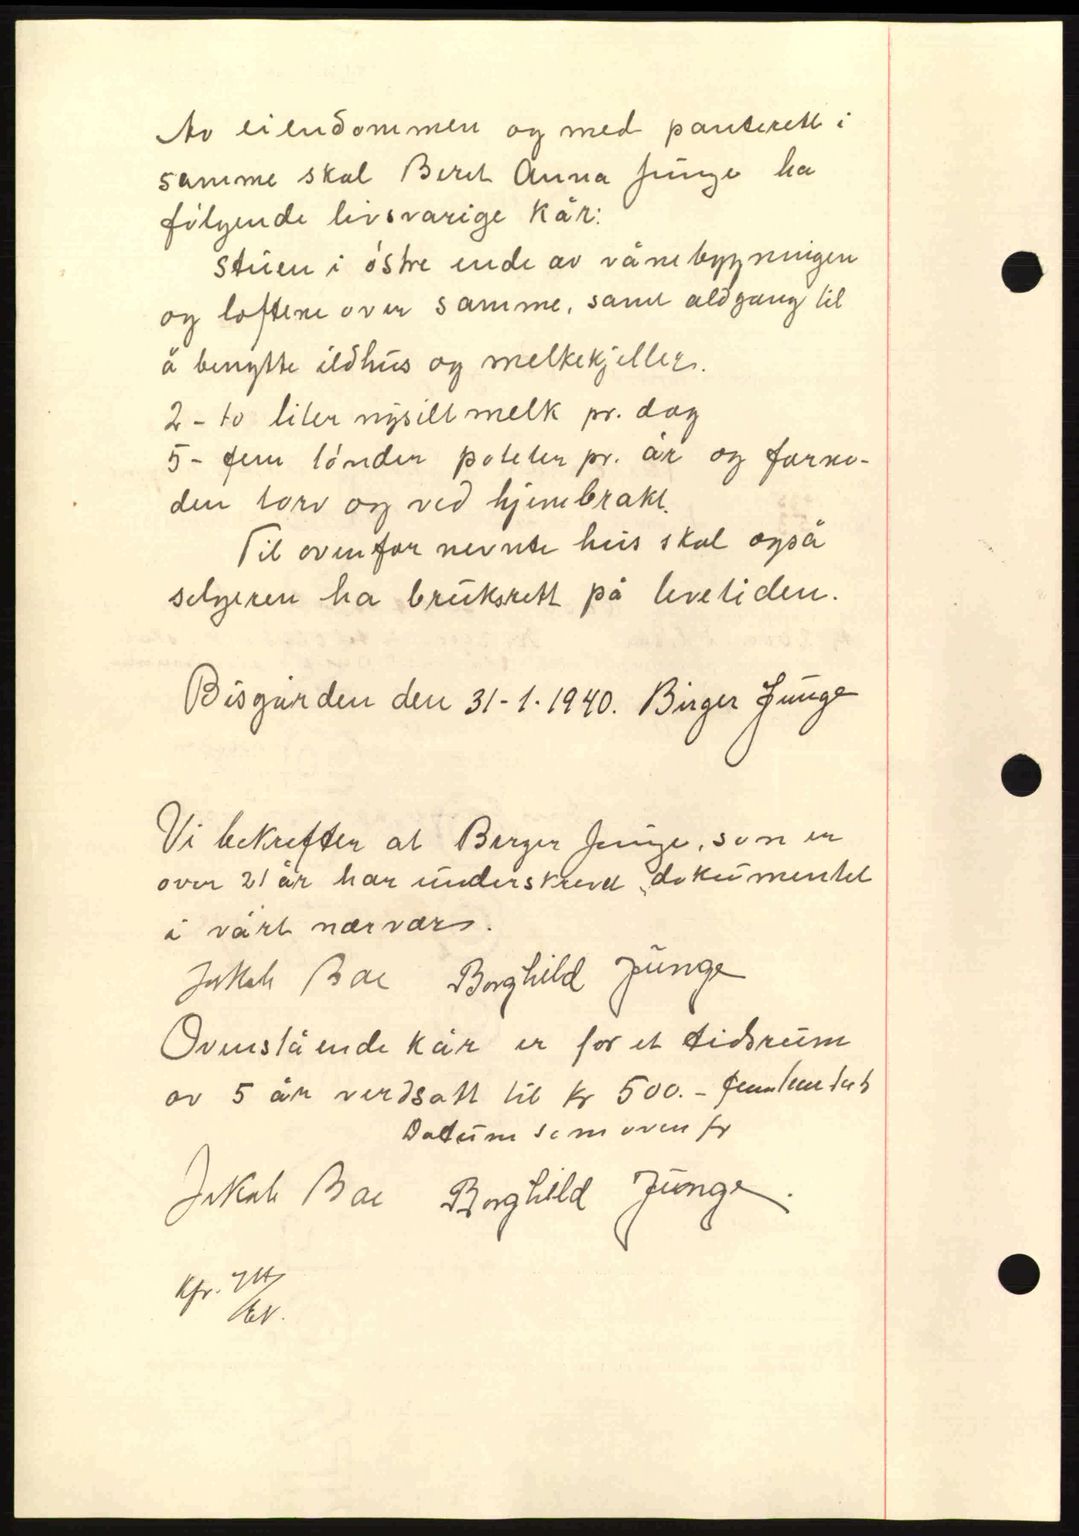 Av eiendommen og med panterett i
samme skal Beret Anna Junge ha
følgende livsvarige kår:
Stuen i østre ende av vånebygningen
og loftene over samme, samt aldgang til
å benytte ildhus og melkekjeller.
2 - to liter nysilt melk pr. dag
5 - fem tønder poteter pr. år og fornø-
den torv og ved hjembrakt.
Til ovenfor nevnte hus skal også
selgeren ha bruksrett på levetiden.
Bisgården den 31-1-1940. Birger Junge
Vi bekrefter at Birger Junge, som er
over 21 år har underskrevet dokumentet
i vårt nærvær.
Jakob Boe Borghild Junge
Ovenstående kår er for et tidsrum
av 5 år verdsatt til kr 500.- femhundred
Datum som oven fr
Jakob Boe Borghild Junge.
Kfr.